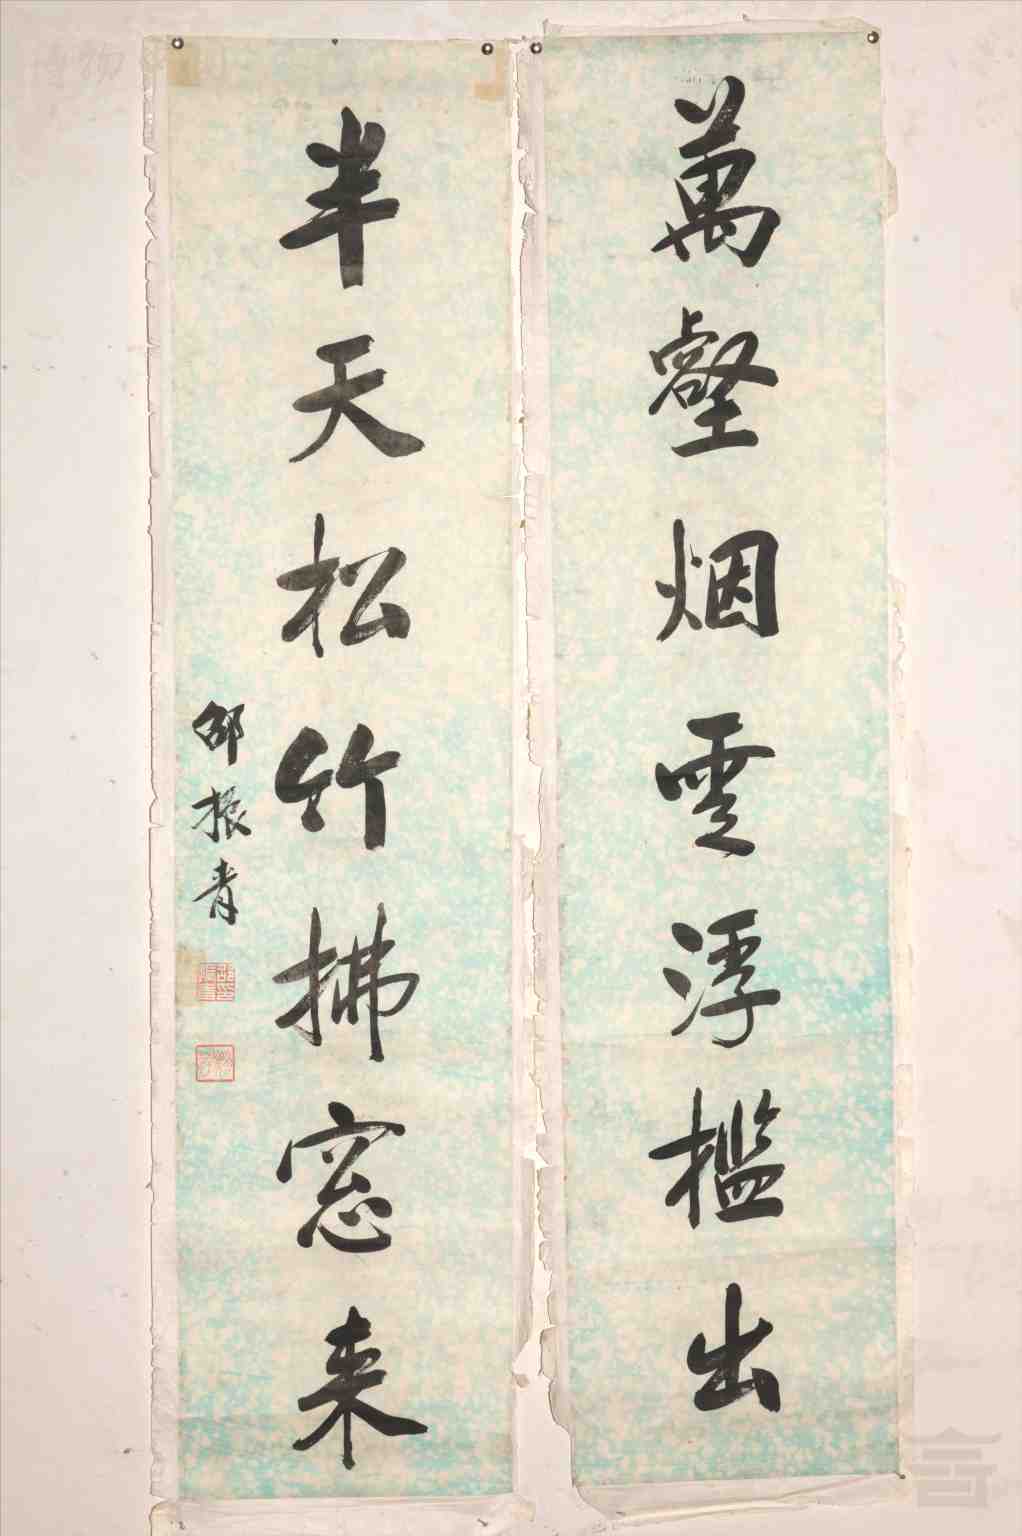 萬壑烟雲浮檻出
半天松竹拂窓来
邵振青